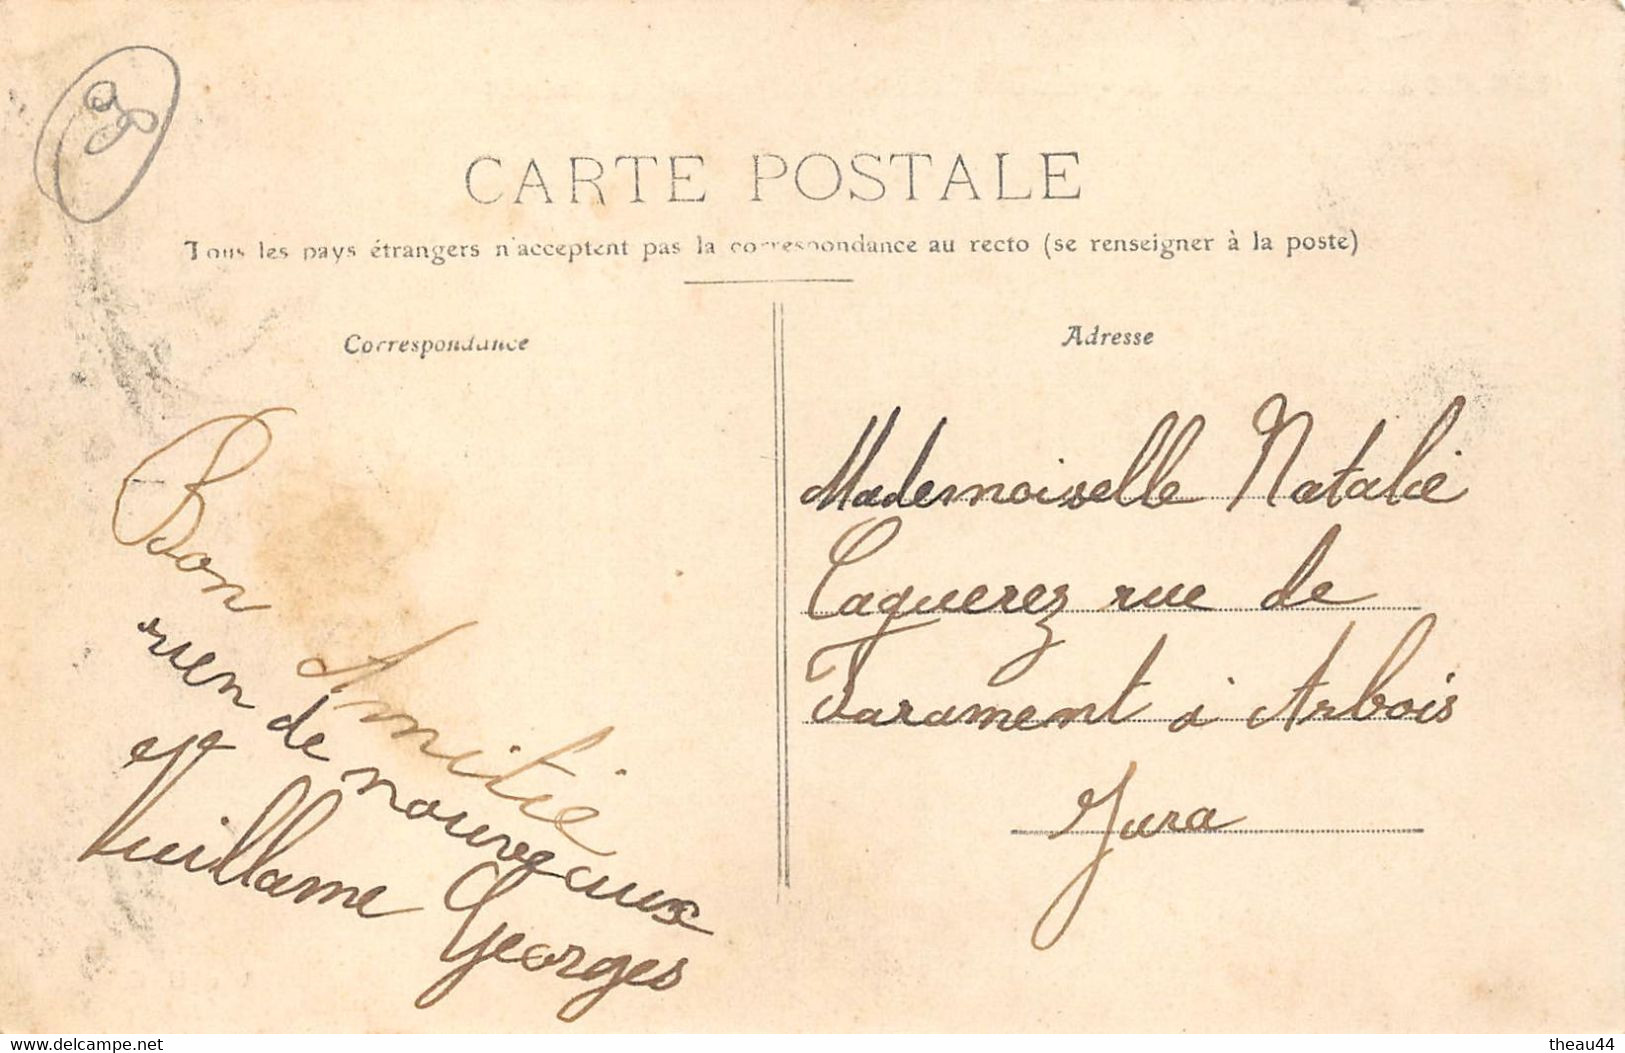 CARTE POSTALE
Tous les pays étrangers n'acceptent pas la correspondance au recto (se renseigner à la poste)
Correspondance
Adresse
Bon Amitié
rien de nouveaux
Vuillame Georges
Mademoiselle Natalie
Caquerez rue de
Farament à Arbois
Jura
www.delcampe.net
theau44